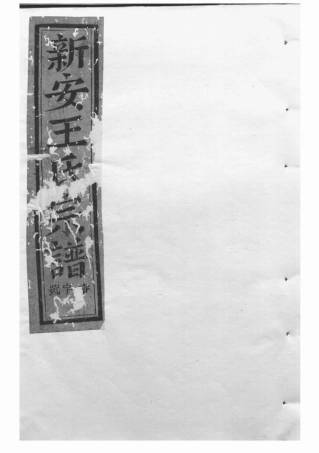 新安王氏宗譜
字號